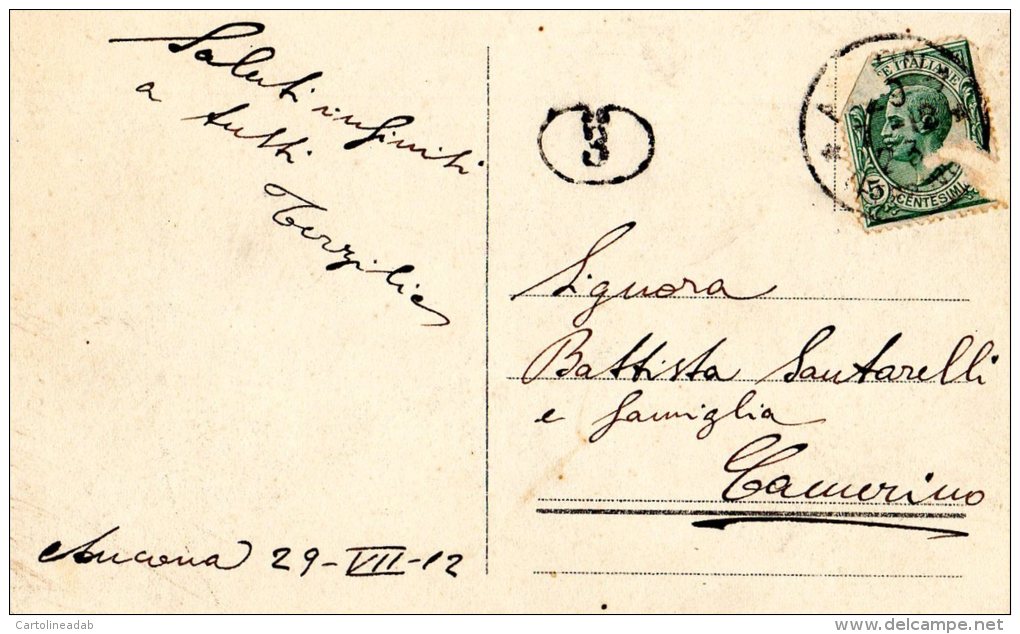 Saluti infiniti
a tutti
Terzilie
Ancona 29-VII-12
E ITALIANE
5
CENTESIMI
Signora
Battista Santarelli
e famiglia
Camerino
Cartolineadab
www.delcampe.net